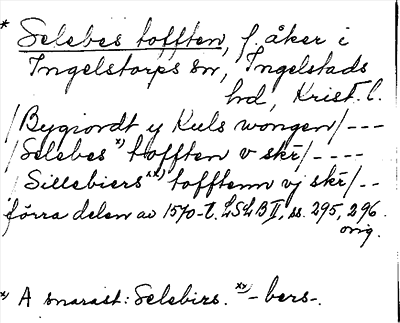 * Selebes tofften, f. åker i
Ingelstorps sn, Ingelstads
hd, Krist. l.
/Bygiordt y Kuls wongen/---
/Selebes x) tofften v skr/----
/Sillebiers xx) tofftenn vj skr/--
förra delen av 1570-t. LSLB II, ss. 295, 296.
orig.
x) A snarast: Selebirs. xx) -bers-.